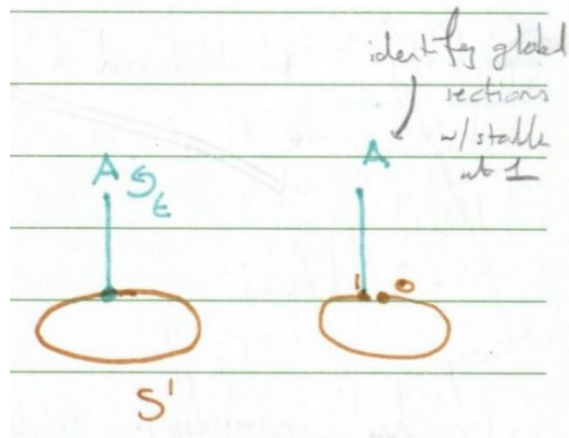 identify global
sections
w/ stalk
at 1
A
t
A
1 0
S¹